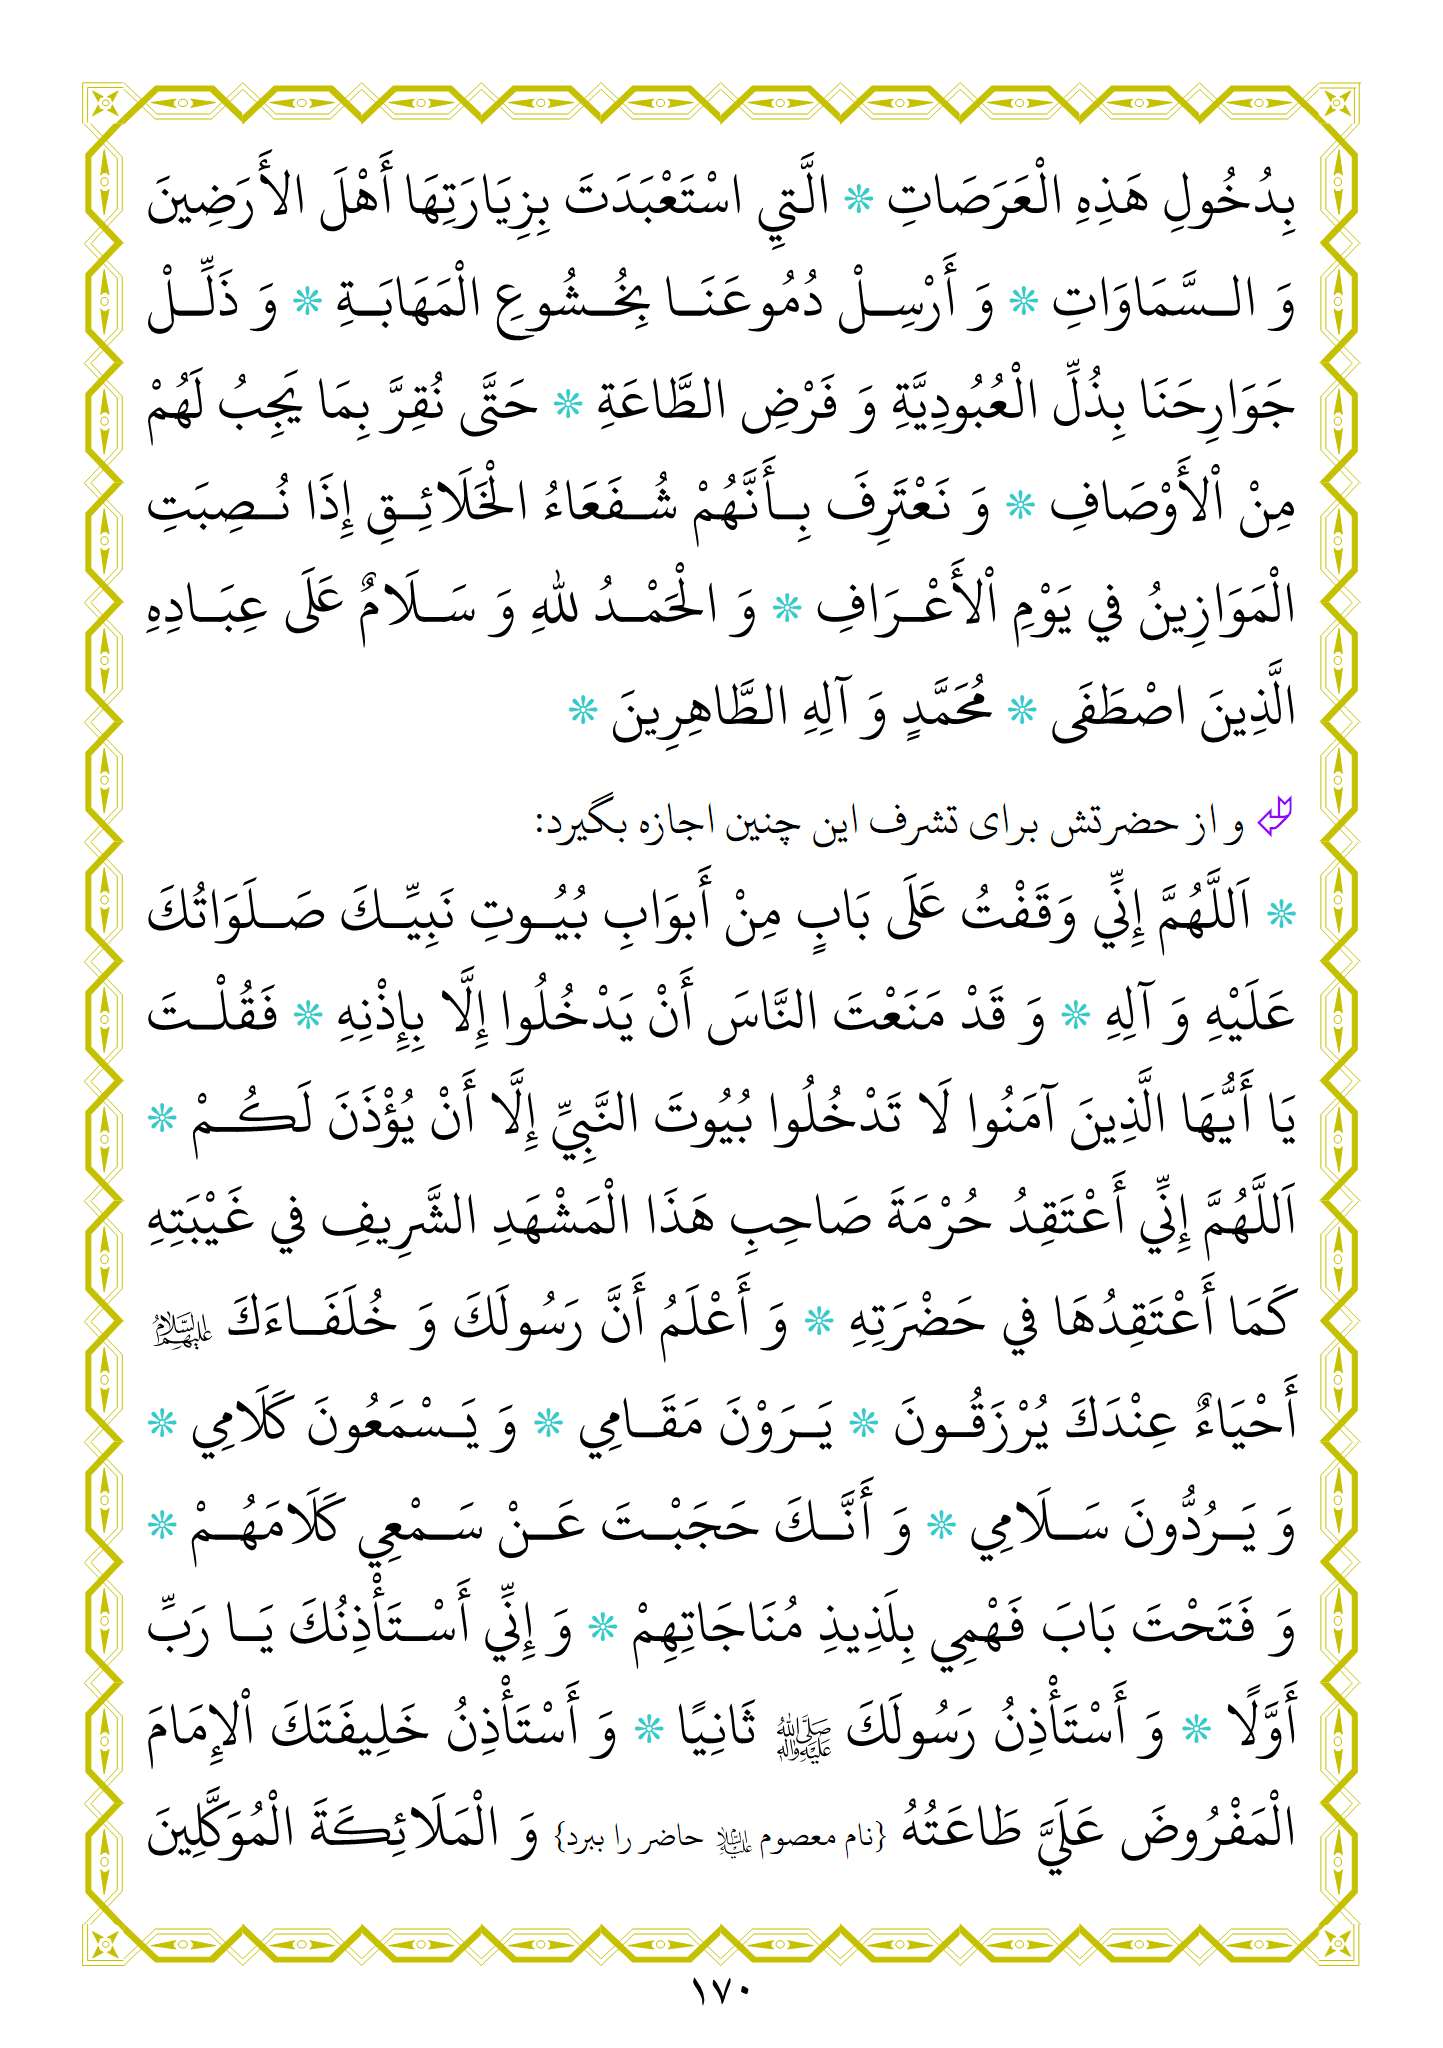 بِدُخُولِ هَذِهِ الْعَرَصَاتِ ❊ الَّتِي اسْتَعْبَدَتَ بِزِيَارَتِهَا أَهْلَ الأَرَضِينَ
وَ الــسَّمَاوَاتِ ❊ وَ أَرْسِــلْ دُمُوعَنَــا بِخُــشُوعِ الْمَهَابَــةِ ❊ وَ ذَلِّــلْ
جَوَارِحَنَا بِذُلِّ الْعُبُودِيَّةِ وَ فَرْضِ الطَّاعَةِ ❊ حَتَّى نُقِرَّ بِمَا يَجِبُ لَهُمْ
مِنْ اْلأَوْصَافِ ❊ وَ نَعْتَرِفَ بِــأَنَّهُمْ شُــفَعَاءُ الْخَلَائِــقِ إِذَا نُــصِبَتِ
الْمَوَازِينُ فِي يَوْمِ اْلأَعْــرَافِ ❊ وَ الْحَمْــدُ للهِ وَ سَــلَامٌ عَلَى عِبَــادِهِ
الَّذِينَ اصْطَفَى ❊ مُحَمَّدٍ وَ آلِهِ الطَّاهِرِينَ ❊
و از حضرتش برای تشرف این چنین اجازه بگیرد:
❊ اَللَّهُمَّ إِنِّي وَقَفْتُ عَلَى بَابٍ مِنْ أَبوَابِ بُيُــوتِ نَبِيِّــكَ صَــلَوَاتُكَ
عَلَيْهِ وَ آلِهِ ❊ وَ قَدْ مَنَعْتَ النَّاسَ أَنْ يَدْخُلُوا إِلَّا بِإِذْنِهِ ❊ فَقُلْــتَ
يَا أَيُّهَا الَّذِينَ آمَنُوا لَا تَدْخُلُوا بُيُوتَ النَّبِيِّ إِلَّا أَنْ يُؤْذَنَ لَكُــمْ ❊
اَللَّهُمَّ إِنِّي أَعْتَقِدُ حُرْمَةَ صَاحِبِ هَذَا الْمَشْهَدِ الشَّرِيفِ فِي غَيْبَتِهِ
كَمَا أَعْتَقِدُهَا فِي حَضْرَتِهِ ❊ وَ أَعْلَمُ أَنَّ رَسُولَكَ وَ خُلَفَــاءَكَ عليهم السلام
أَحْيَاءٌ عِنْدَكَ يُرْزَقُــونَ ❊ يَــرَوْنَ مَقَــامِي ❊ وَ يَــسْمَعُونَ كَلَامِي ❊
وَ يَــرُدُّونَ سَــلَامِي ❊ وَ أَنَّــكَ حَجَبْــتَ عَــنْ سَــمْعِي كَلَامَهُــمْ ❊
وَ فَتَحْتَ بَابَ فَهْمِي بِلَذِيذِ مُنَاجَاتِهِمْ ❊ وَ إِنِّي أَسْــتَأْذِنُكَ يَــا رَبِّ
أَوَّلًا ❊ وَ أَسْتَأْذِنُ رَسُولَكَ صلى الله عليه وآله ثَانِيًا ❊ وَ أَسْتَأْذِنُ خَلِيفَتَكَ اْلإِمَامَ
الْمَفْرُوضَ عَلَيَّ طَاعَتُهُ {نام معصوم عليه السلام حاضر را ببرد} وَ الْمَلَائِكَةَ الْمُوَكَّلِينَ
١٧٠